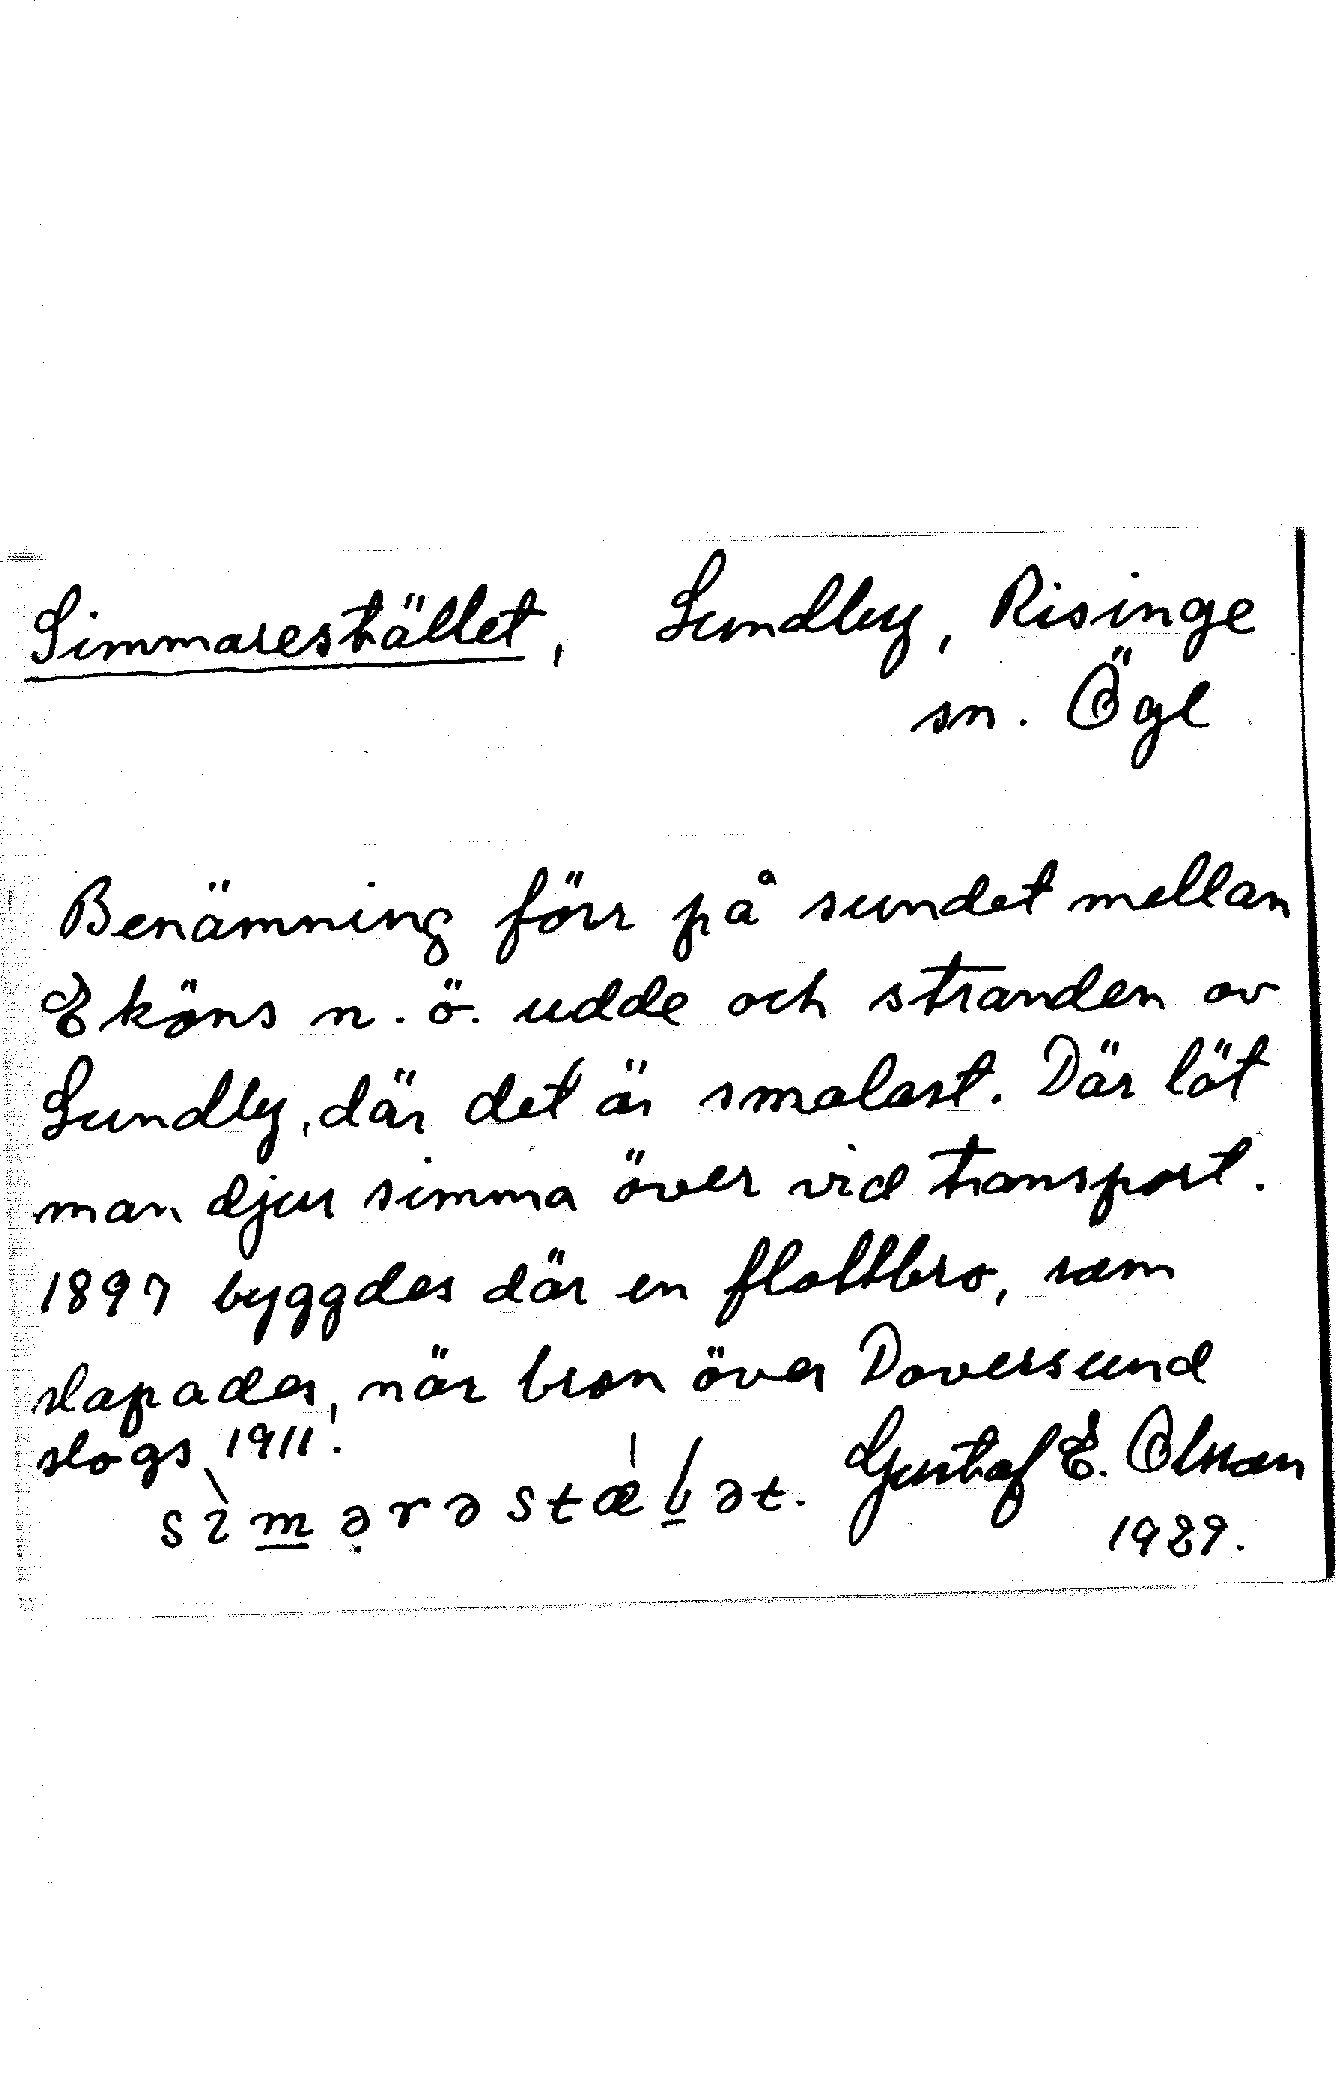 Simmarestället, Sundby, Risinge
sn. Ögl
Benämning förr på sundet mellan
Eköns n.ö. udde och stranden av
Sundby, där det är smalast. Där lät
man djur simma över vid transport.
1897 byggdes där en flottbro, som
slopades, när bron över Doversund
slogs 1911.
Gustaf E. Olsson
1989.